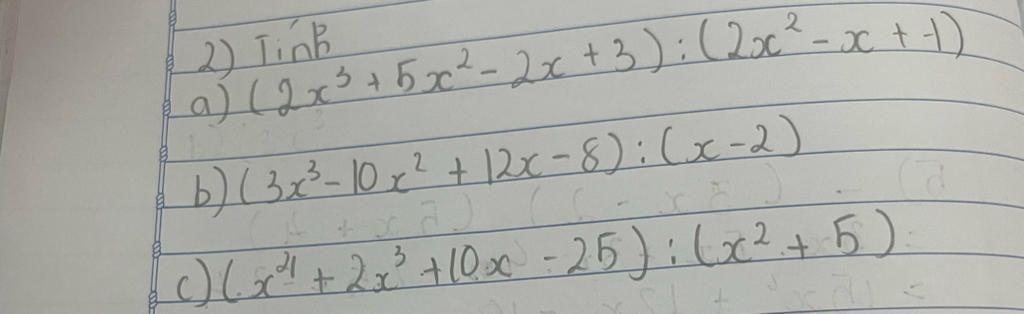 2) Tính
a) (2x³ + 5x² - 2x + 3) : (2x² - x + 1)
b) (3x³ - 10x² + 12x - 8) : (x - 2)
c) (x⁴ + 2x³ + 10x - 25) : (x² + 5)